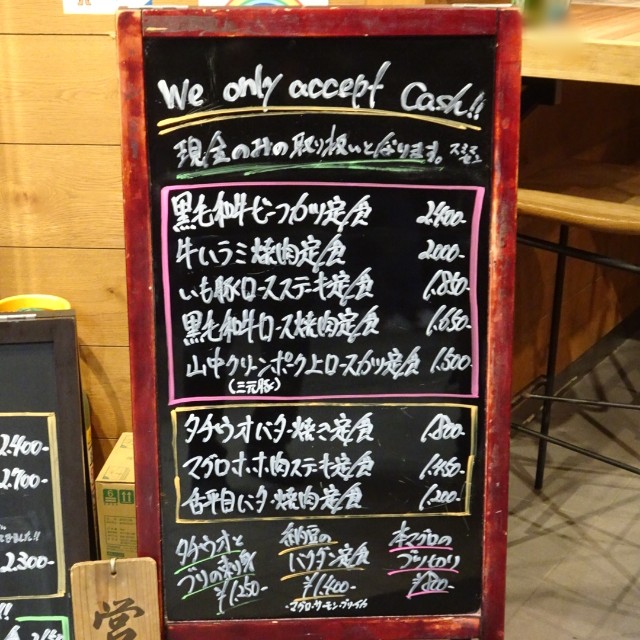 We only accept Cash!!
現金のみの取り扱いとなります。スミマセン
黒毛和牛ビーフカツ定食 2,400-
牛ハラミ焼肉定食 2,000-
いも豚ロースステーキ定食
黒毛和牛ロース焼肉定食 1,650-
山中クリーンポーク上ロースカツ定食 1,500-
(三元豚)
タチウオバター焼き定食 1,800-
マグロホホ肉ステーキ定食 1,450-
舌平目バター焼肉定食 1,200-
タチウオと
ブリの刺身
¥1,250-
納豆の
バクダン定食
¥1,400-
本マグロの
ブツ切り
¥800-
2,400-
2,700-
2,300-
営